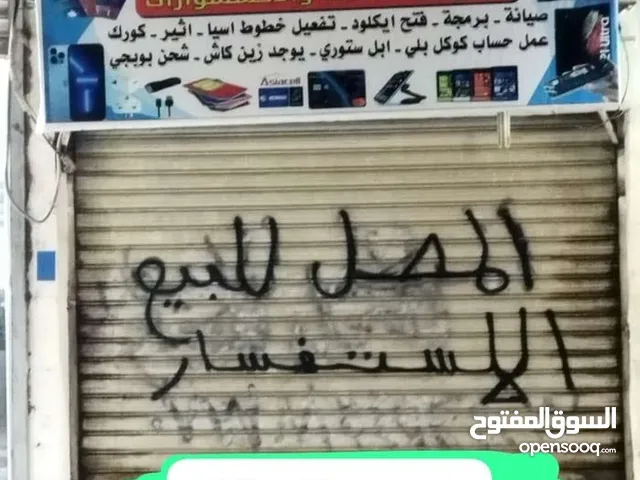 صيانة - برمجة - فتح ايكلود - تفعيل خطوط اسيا - اثير - كورك
عمل حساب كوكل بلي - ابل ستوري - يوجد زين كاش - شحن بوبجي
Asiacell
21 Ultra
المحل للبيع
الاستفسار
السوق المفتوح
opensooq.com